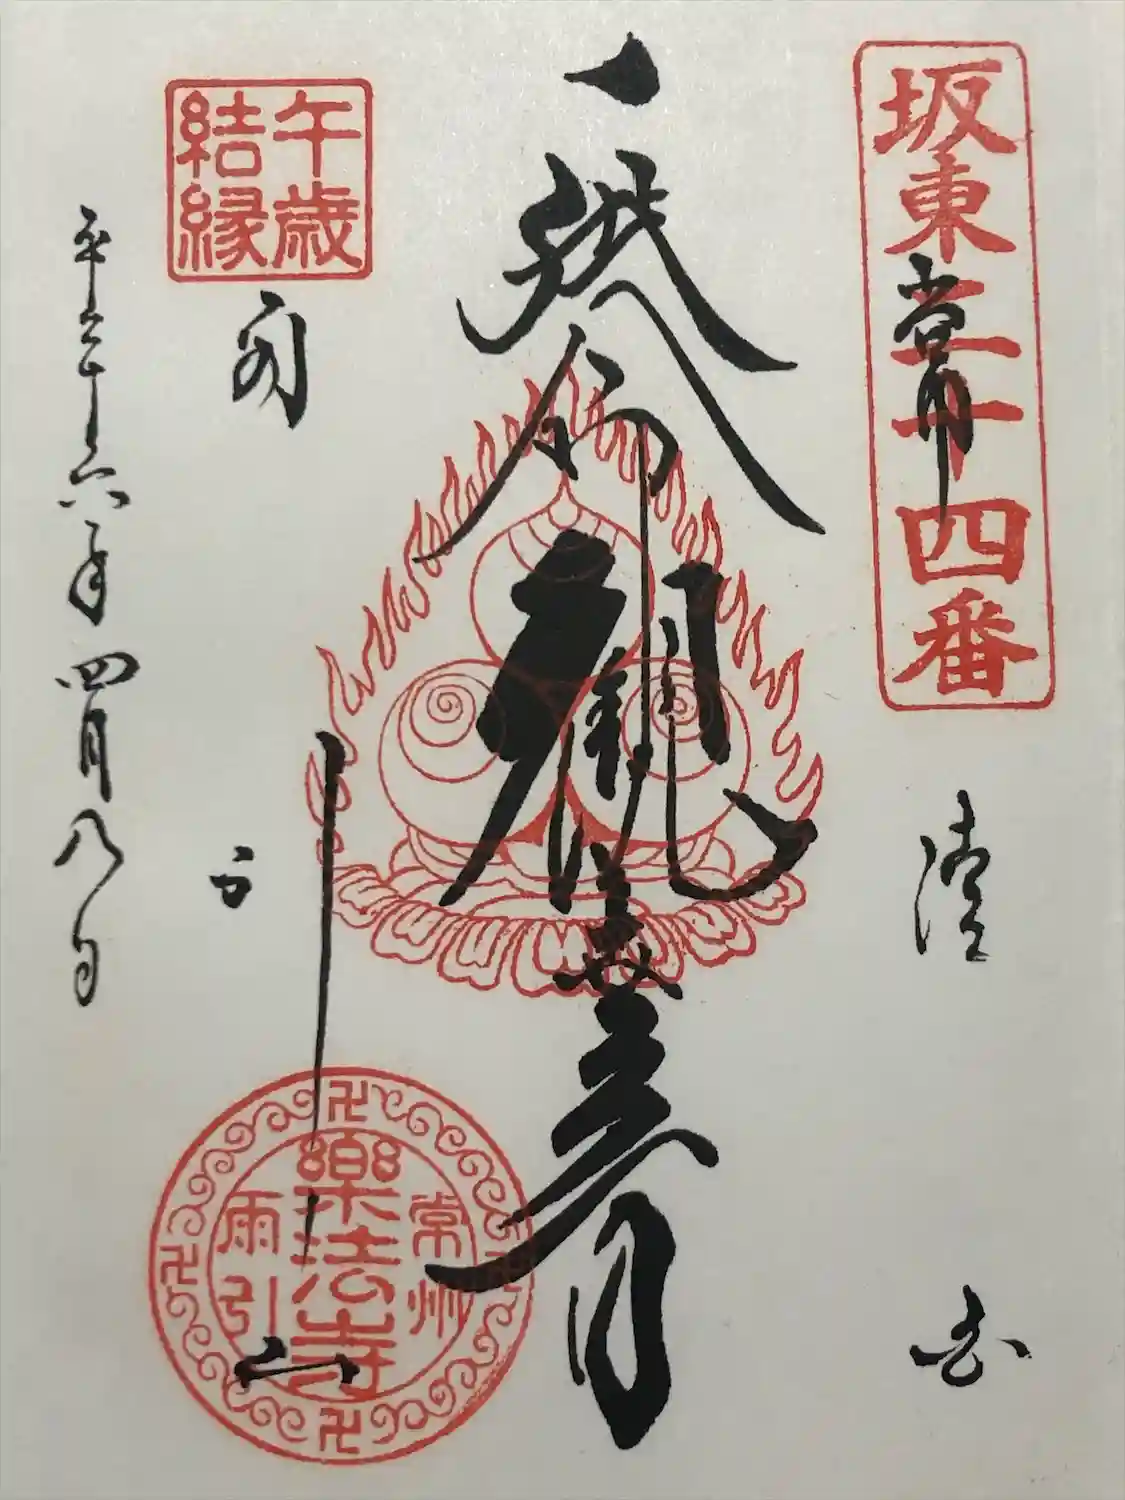 坂東二十四番
常陸国
延命観世音
午歳
結縁
雨引山
平成二十六年四月八日
常州
樂法寺
雨引